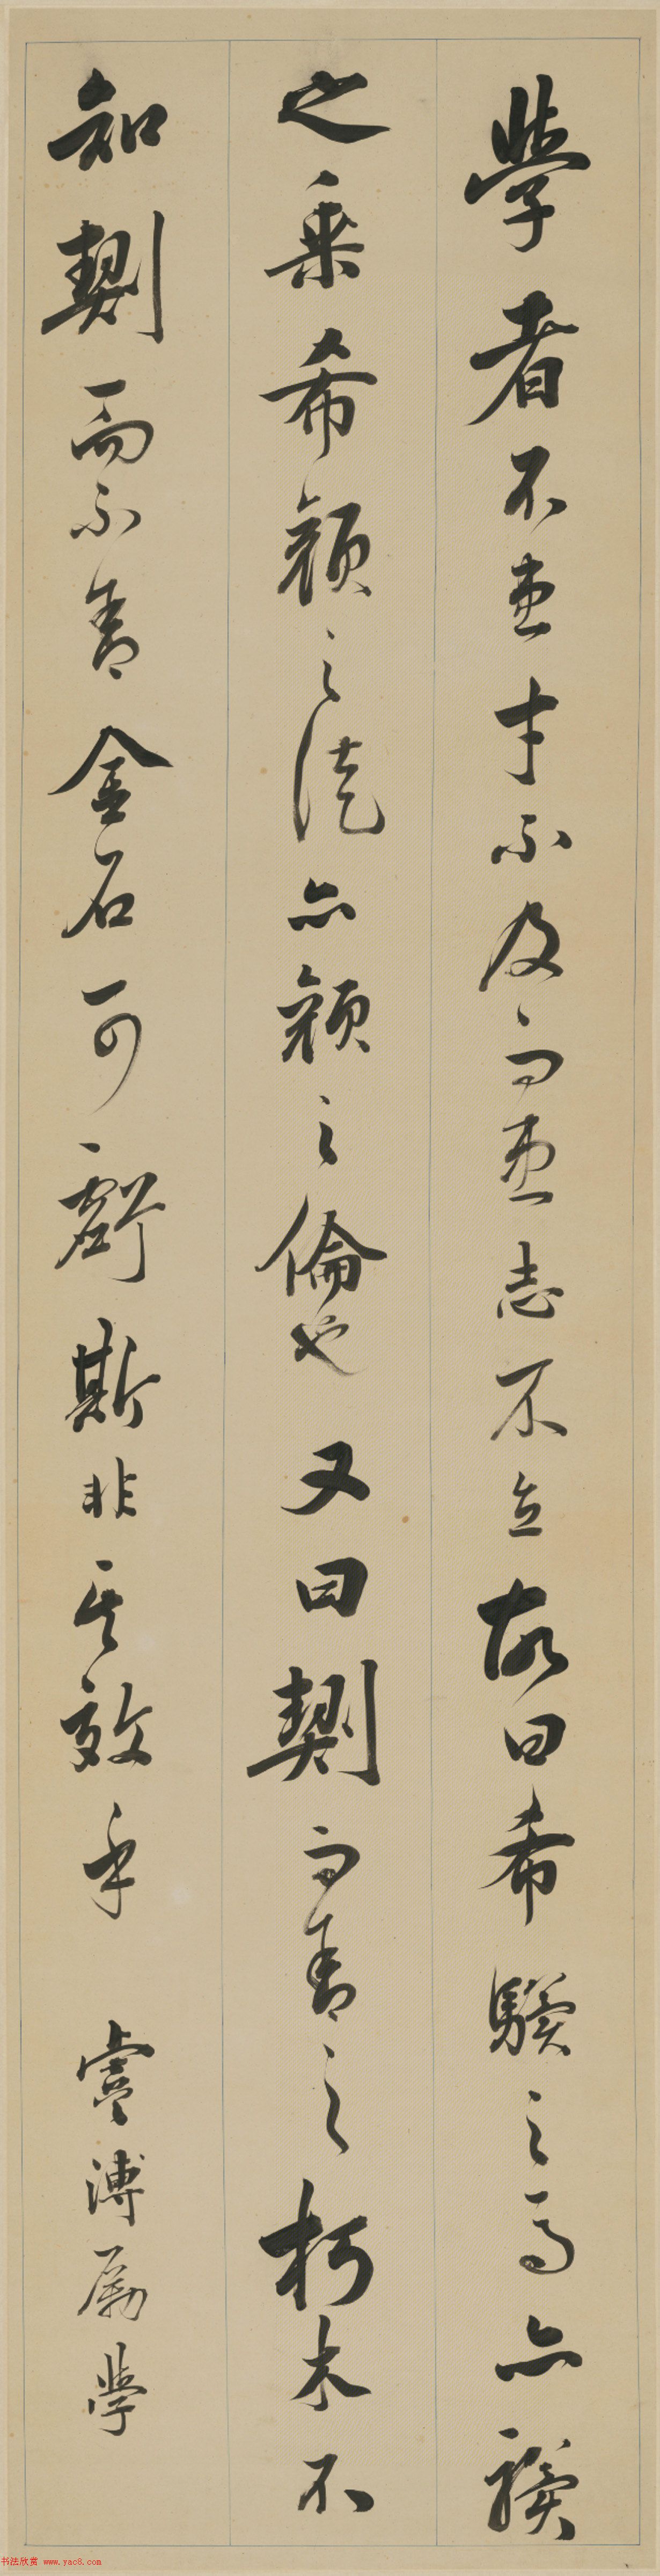 學者不患才不及而患志不立故曰希驥之馬亦驥
之乘希顏之徒亦顏之倫也又曰契而舍之朽木不
知契而不舍金石可虧斯非其效乎 虞溥厲學
书法欣赏 www.yac8.com